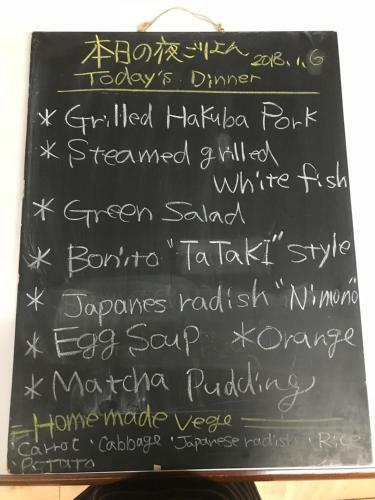 本日の夜ごはん 2018.1.6
Today's Dinner
* Grilled Hakuba Pork
* Steamed grilled
white fish
* Green Salad
* Bonito "TaTaKI" style
* Japanes radish "Nimono"
* Egg Soup * Orange
* Matcha Pudding
Home made Vege
Carrot・Cabbage・Japanese radish・Rice
・Potato